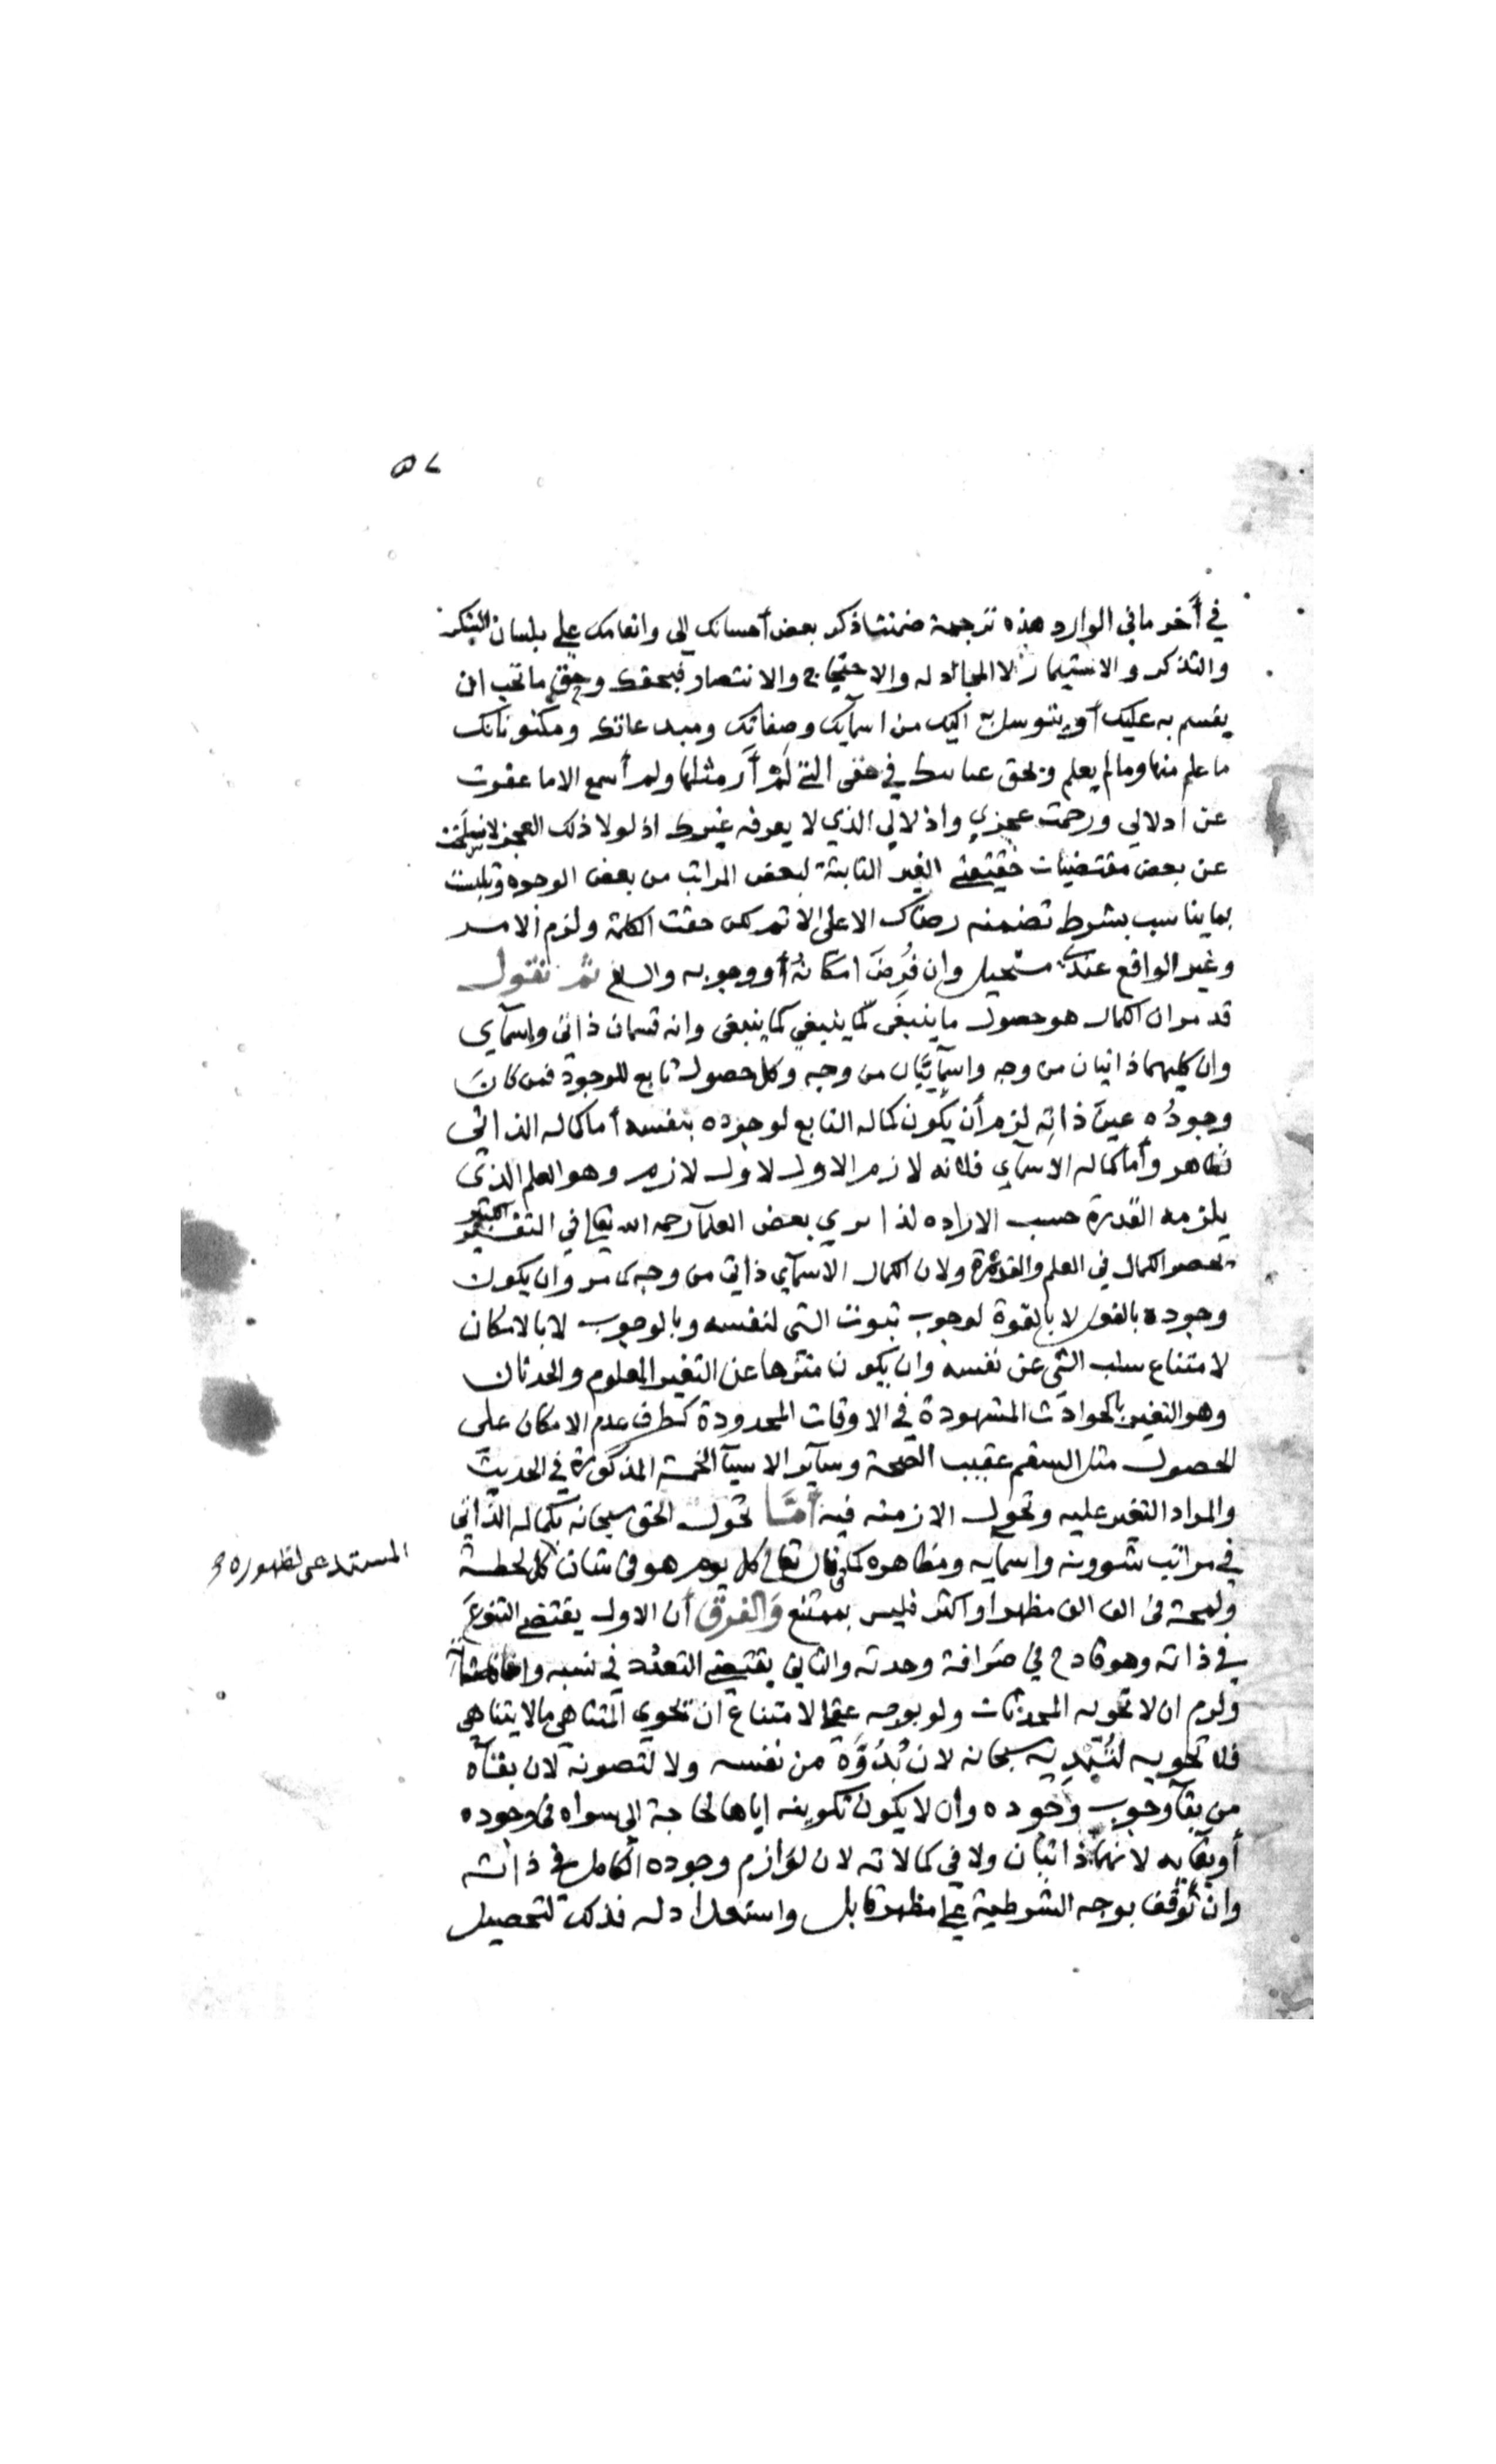 ٥٧
في أخر ما في الوارد هذه ترجمة ضمنتها ذكر بعض احسانك الى وانعامك علي بلسان الشكر
والتذكر والاستيمار لا المجادله والاحتجاج والانتصار فبحقك وحق ما تحب ان
يقسم به عليك أو يتوسل به اليك من اسمآيك وصفاتك ومبدعاتك ومكنوناتك
ما علم منها وما لم يعلم وبحق عنايتك في حقى التى لم أر مثلها ولم أسمع الا ما عفوت
عن ادلالي ورحمت عجزي واذلالي الذي لا يعرفه غيرك اذ لولا ذلك العجز لانسلخت
عن بعض مقتضيات حقيقتي الغير الثابتة لبعض المراتب من بعض الوجوه وتلبست
بما يناسب بشرط تضمنه رضاك الاعلى الاتم لكن حقت الكلمة ولزم الامر
وغير الواقع عندك مستحيل وان فُرِضَ امكانهُ أو وجوبه والسلم ثم نقول
قد مر ان الكمال هو حصول ما ينبغى لما ينبغي كما ينبغى وانه قسمان ذاتى واسمآي
وان كليهما ذاتيان من وجه واسمآئيان من وجه وكل حصول تابع للوجود فمن كان
وجودُه عين ذاتِه لزم أن يكون كماله التابع لوجوده بنفسه أما كماله الذاتى
فظاهر وأما كماله الاسمآي فلانه لازم الاول لاول لازم وهو العلم الذى
يلزمه القدرة حسب الاراده لذا يرى بعض العلمآ رحمه الله تعالى في التفسير الكبير
حصر الكمال في العلم والقدرة ولان الكمال الاسمآي ذاتي من وجه كما مر وان يكون
وجوده بالفعل لا بالقوة لوجوب ثبوت الشى لنفسه وبالوجوب لا بالامكان
لامتناع سلب الشى عن نفسه وان يكون منزها عن التغير المعلوم والحدثان
وهو التغير بالحوادث المشهودة في الاوقات المحدودة كطرف عدم الامكان على
الحصول مثل السقم عقيب الصحة وسآير الاسيآ الخمسة المذكورة في الحديث
والمراد التغير عليه وتحول الازمنه فيه أمّا تحول الحق سبحانه بكماله الذاتي
المستدعى لظهوره
في مراتب شوونه واسمآيه ومظاهره كما قال تعالى كل يوم هو فى شان كل لحظة
ولمحة فى الف الف مظهر أو اكثر فليس بممتنع والفرق أن الاول يقتضى التنوع
في ذاته وهو قادح في صرافة وحدته والثاني يقتضى التعدد في نسبه واضافاته
ولزم ان لا تحويه المحدثات ولو بوجه عقلا لامتناع ان تحوي المتناهى مالا يتناهى
فلا تحويه لتُبْدِيه سبحانه لان بُدُوَّه من نفسه ولا لتصونه لان بقآه
من بقآ وجوب وجوده وأن لا يكون تكوينه اياها لحاجة الى سواه فى وجوده
أو بقآيه لانهما ذاتيان ولا في كمالاته لان لوازم وجوده الكامل في ذاته
وان توقف بوجه الشرطية على مظهر قابل واستعداد له فذلك لتحصيل